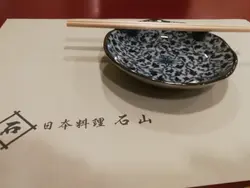 石 日本料理 石山